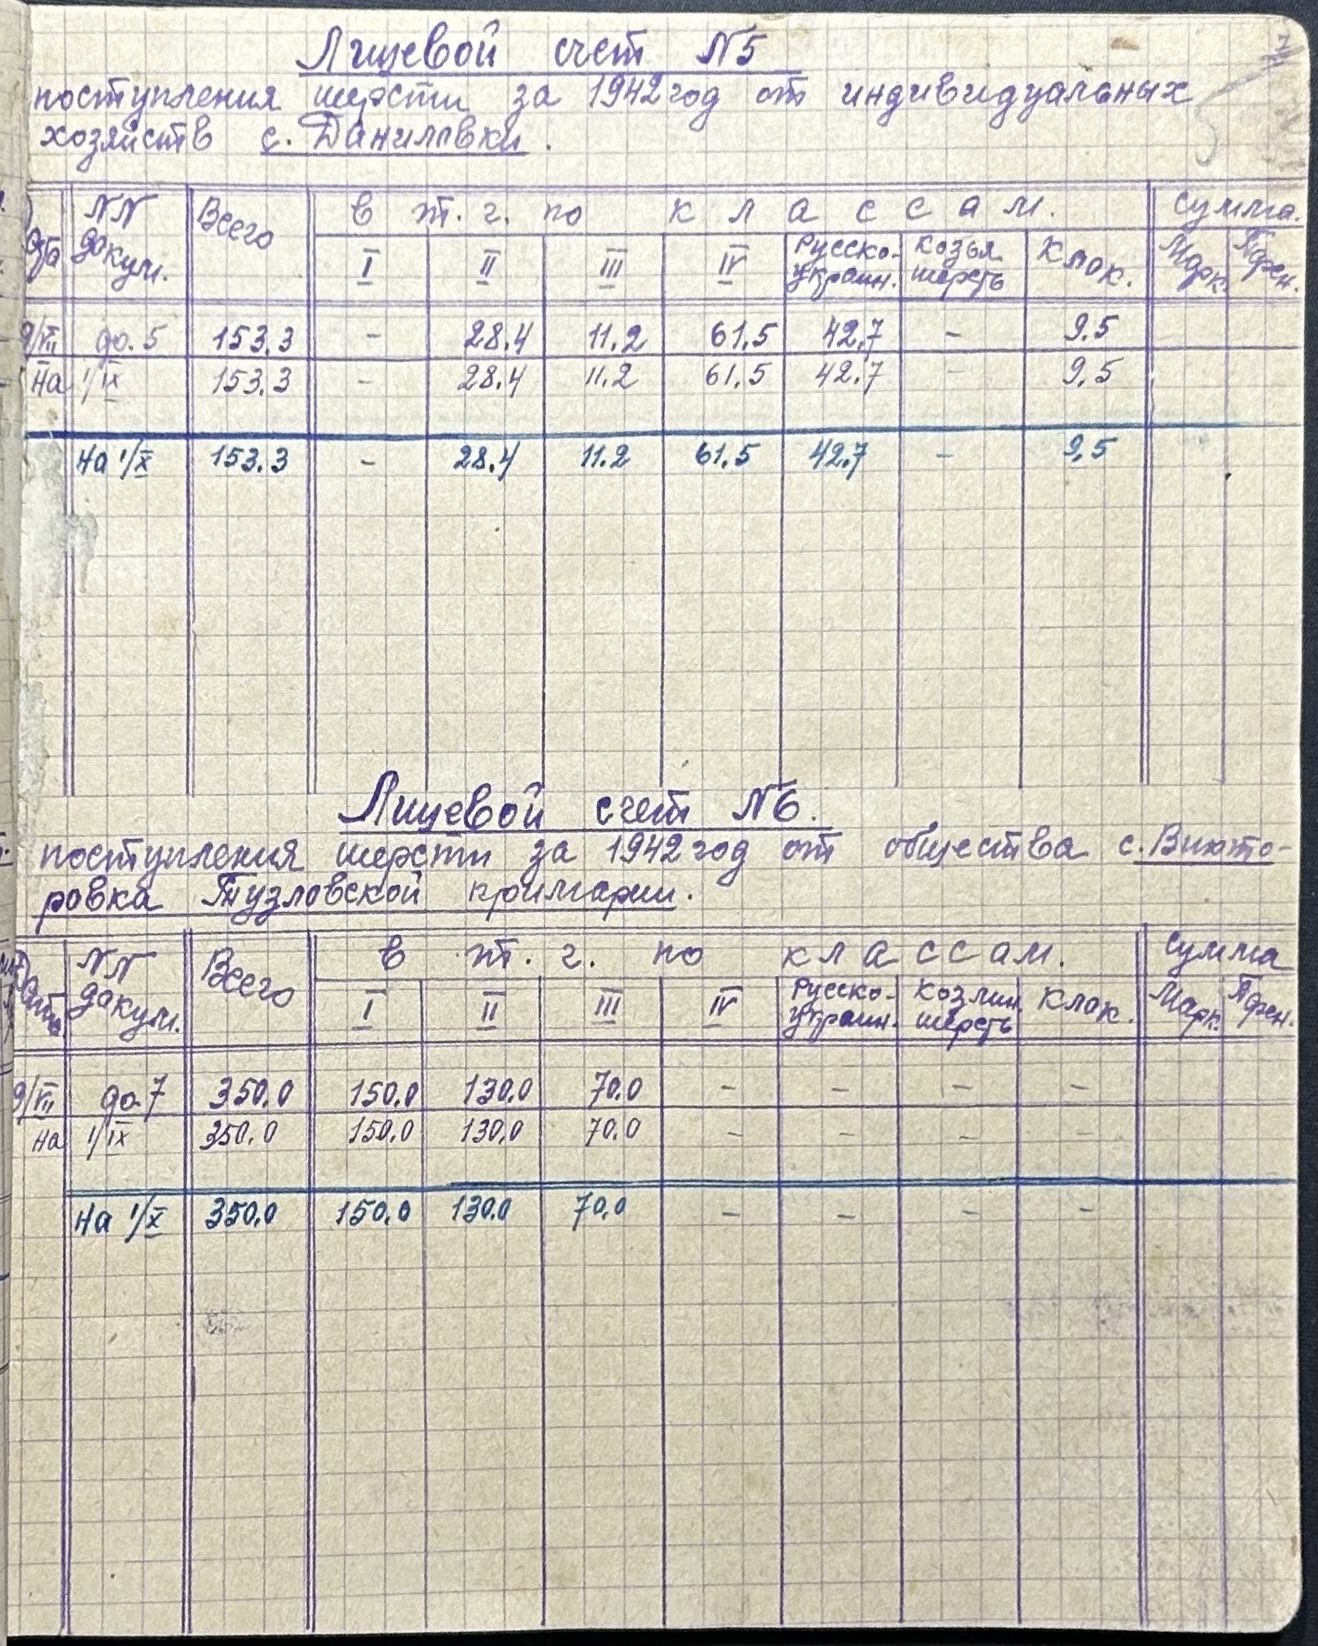 Лицевой счет N5
поступления шерсти за 1942 год от индивидуальных
хозяйств с. Даниловки.
Дата NN докум. Всего в т. г. по классам. сумма.
I II III IV Русско-украин. козья шерсть Клок. Марк. Пфен.
9/VII до. 5 153.3 - 28.4 11.2 61.5 42.7 - 9.5
На 1/IX 153.3 - 28.4 11.2 61.5 42.7 - 9.5
На 1/X 153.3 - 28.4 11.2 61.5 42.7 - 9.5
Лицевой счет N6.
поступления шерсти за 1942 год от общества с. Викто-
ровка Тузловской примарии.
Дата NN докум. Всего в т. г. по классам. сумма
I II III IV Русско-украин. козлин. шерсть Клок. Марк. Пфен.
9/VII до 7 350.0 150.0 130.0 70.0 - - - -
На 1/IX 350.0 150.0 130.0 70.0 - - -
На 1/X 350.0 150.0 130.0 70.0 - - - -